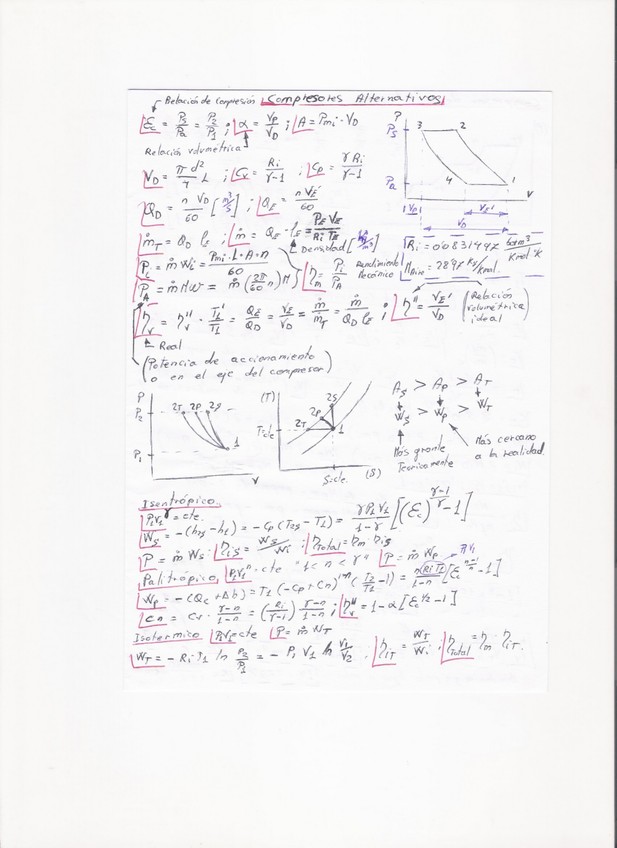 Relación de Compresión Compresores Alternativos
Ɛc = Ps/Pa = P2/P1 ; α = Vp/VD ; A = Pmi · VD
Relación volumétrica
VD = π d²/4 L ; Cv = Ri/γ-1 ; Cp = γ Ri/γ-1
QD = n VD/60 [m³/s] ; QE = n VE'/60
ṁT = QD ρE ; ṁ = QE · ρE = PE VE/Ri TE
Densidad
Pi = ṁ Wi = Pmi · L · A · n/60
Rendimiento Mecánico
ηm = Pi/PA
PA = ṁ MW = ṁ (2π/60 n) M
ηv = ηv'' · T1'/T1 = QE/QD = VE/VD = ṁ/ṁT = ṁ/QD ρE ; η'' = VE'/VD (Relación volumétrica ideal)
Real
(Potencia de accionamiento o en el eje del compresor)
P
Ps 3 2
Pa 4 1
V
VE'
VD
Ri = 0'0831447
Kmol °K
MAire = 28'97 Kg/Kmol.
P
P2 2T 2P 2S
P1 1
V
(T)
2S
2P
2T 1
T=cte
S=cte. (S)
AS > AP > AT
WS > WP > WT
Más grande Teoricamente
Más cercano a la realidad.
Isentrópico
P1V1^γ = cte.
WS = -(h2s - h1) = -Cp (T2s - T1) = γP1V1/1-γ [(Ɛc)^(γ-1/γ) - 1]
P = ṁ WS ; ηiS = WS/Wi ; ηTotal = ηm ηiS
Palitrópico P1V1^n = cte "1 < n < γ" P = ṁ WP
P1V1
Cn = Cv · γ-n/1-n = (Ri/γ-1) γ-n/1-n ; ηv'' = 1 - α [Ɛc^1/n - 1]
Isotermico P1V1 cte P = ṁ WT
WT = - Ri · T1 ln P2/P1 = - P1 V1 ln V1/V2 . ηiT = WT/Wi ; ηTotal = ηm ηiT.